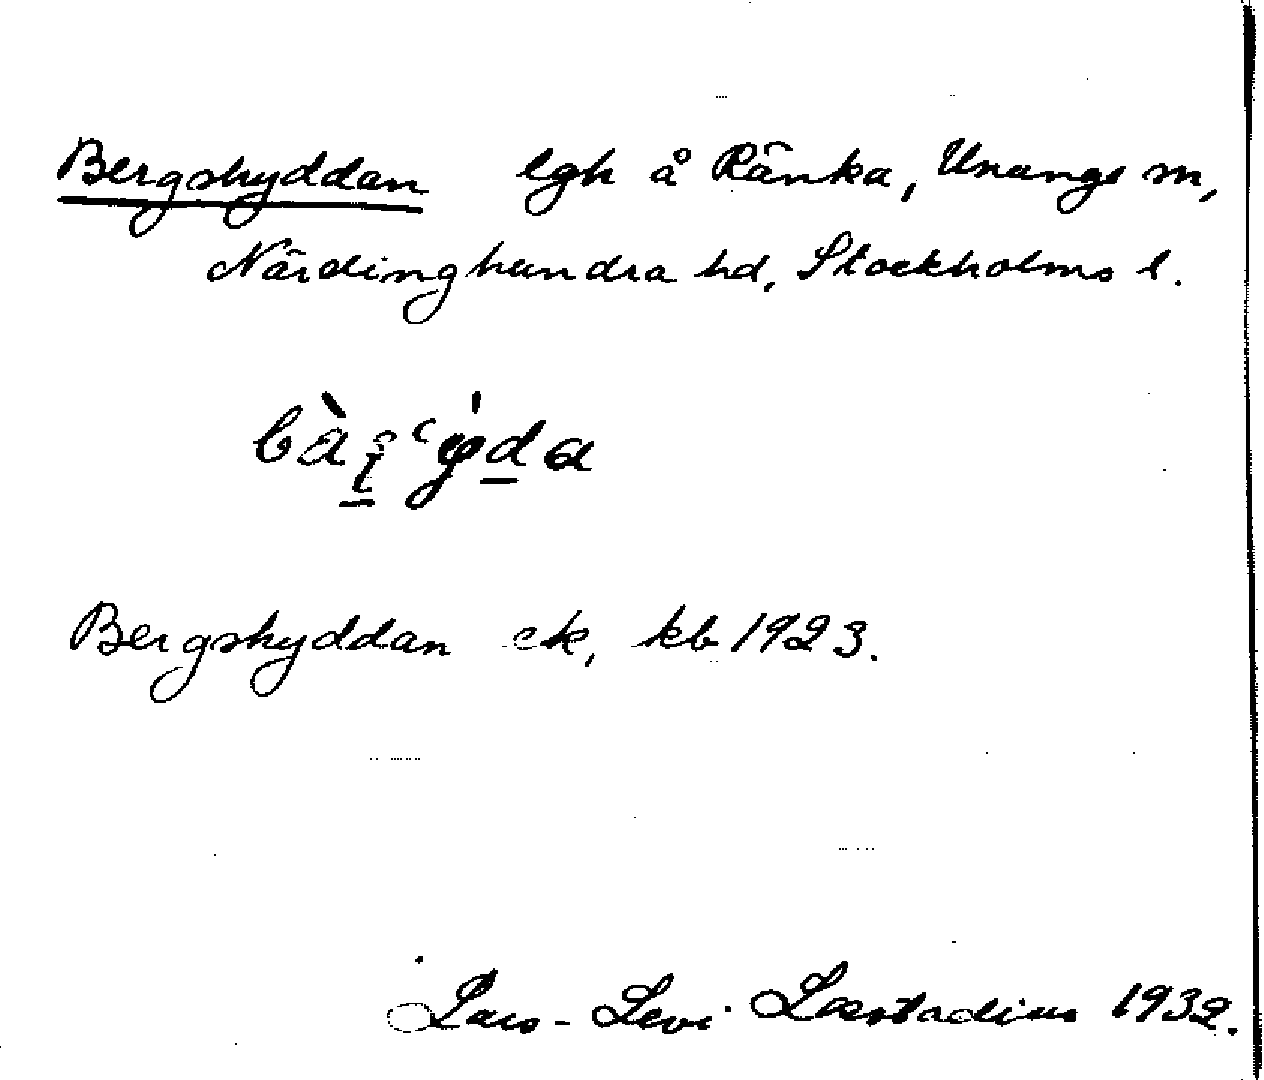 Bergshyddan lgh å Ränka, Unangs sn,
Närdinghundra hd, Stockholms l.
Bergshyddan ek, kb 1923.
Lars-Levi Læstadius 1932.